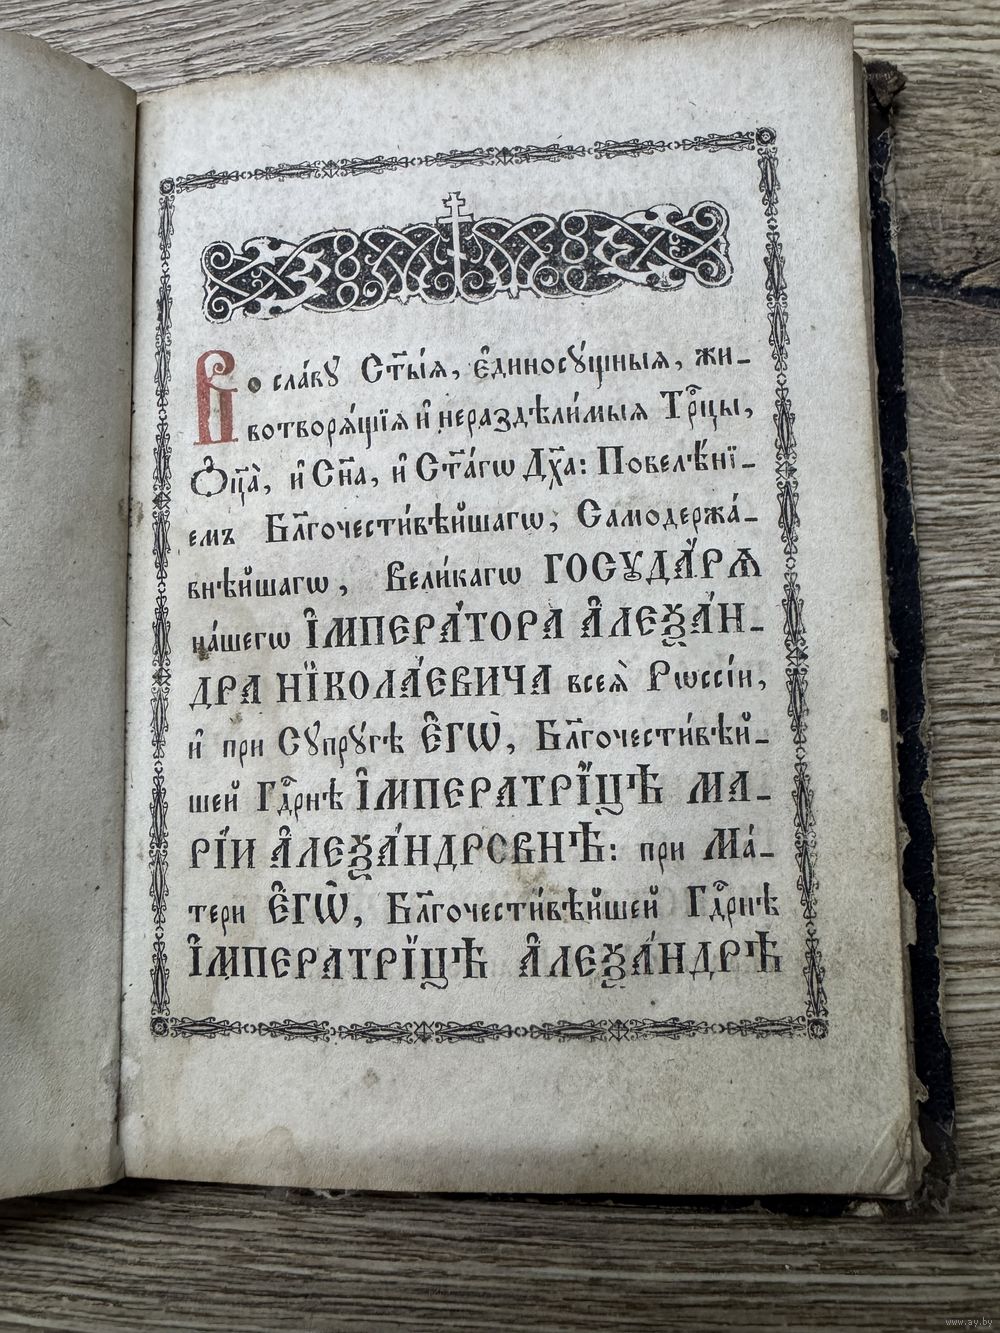 Во сла́вꙋ Ст҃ы́ѧ, є҆диносꙋ́щныѧ, жи-
вотворѧ́щїѧ и҆ нераздѣли́мыѧ Трⷪ҇цы,
Ѻ҆ц҃а̀, и҆ Сн҃а, и҆ Ст҃а́гѡ Дх҃а: Повелѣ́нї-
емъ Бл҃гочести́вѣйшагѡ, Самодержа́-
внѣйшагѡ, Вели́кагѡ ГОСꙊДА́РѦ
на́шегѡ І҆МПЕРА́ТОРА А҆ЛЕѮА́Н-
ДРА НЇКОЛА́ЕВИЧА всеѧ̀ Рѡссі́и,
и҆ при Сꙋпрꙋ́гѣ Є҆ГѠ̀, Бл҃гочести́вѣй-
шей Гдⷭ҇рнѣ І҆МПЕРАТРИ́ЦѢ МА-
РІ́И А҆ЛЕѮА́НДРОВНѢ: при Ма́-
тери Є҆ГѠ̀, Бл҃гочести́вѣйшей Гдⷭ҇рнѣ
І҆МПЕРАТРИ́ЦѢ А҆ЛЕѮА́НДРѢ
www.ay.by